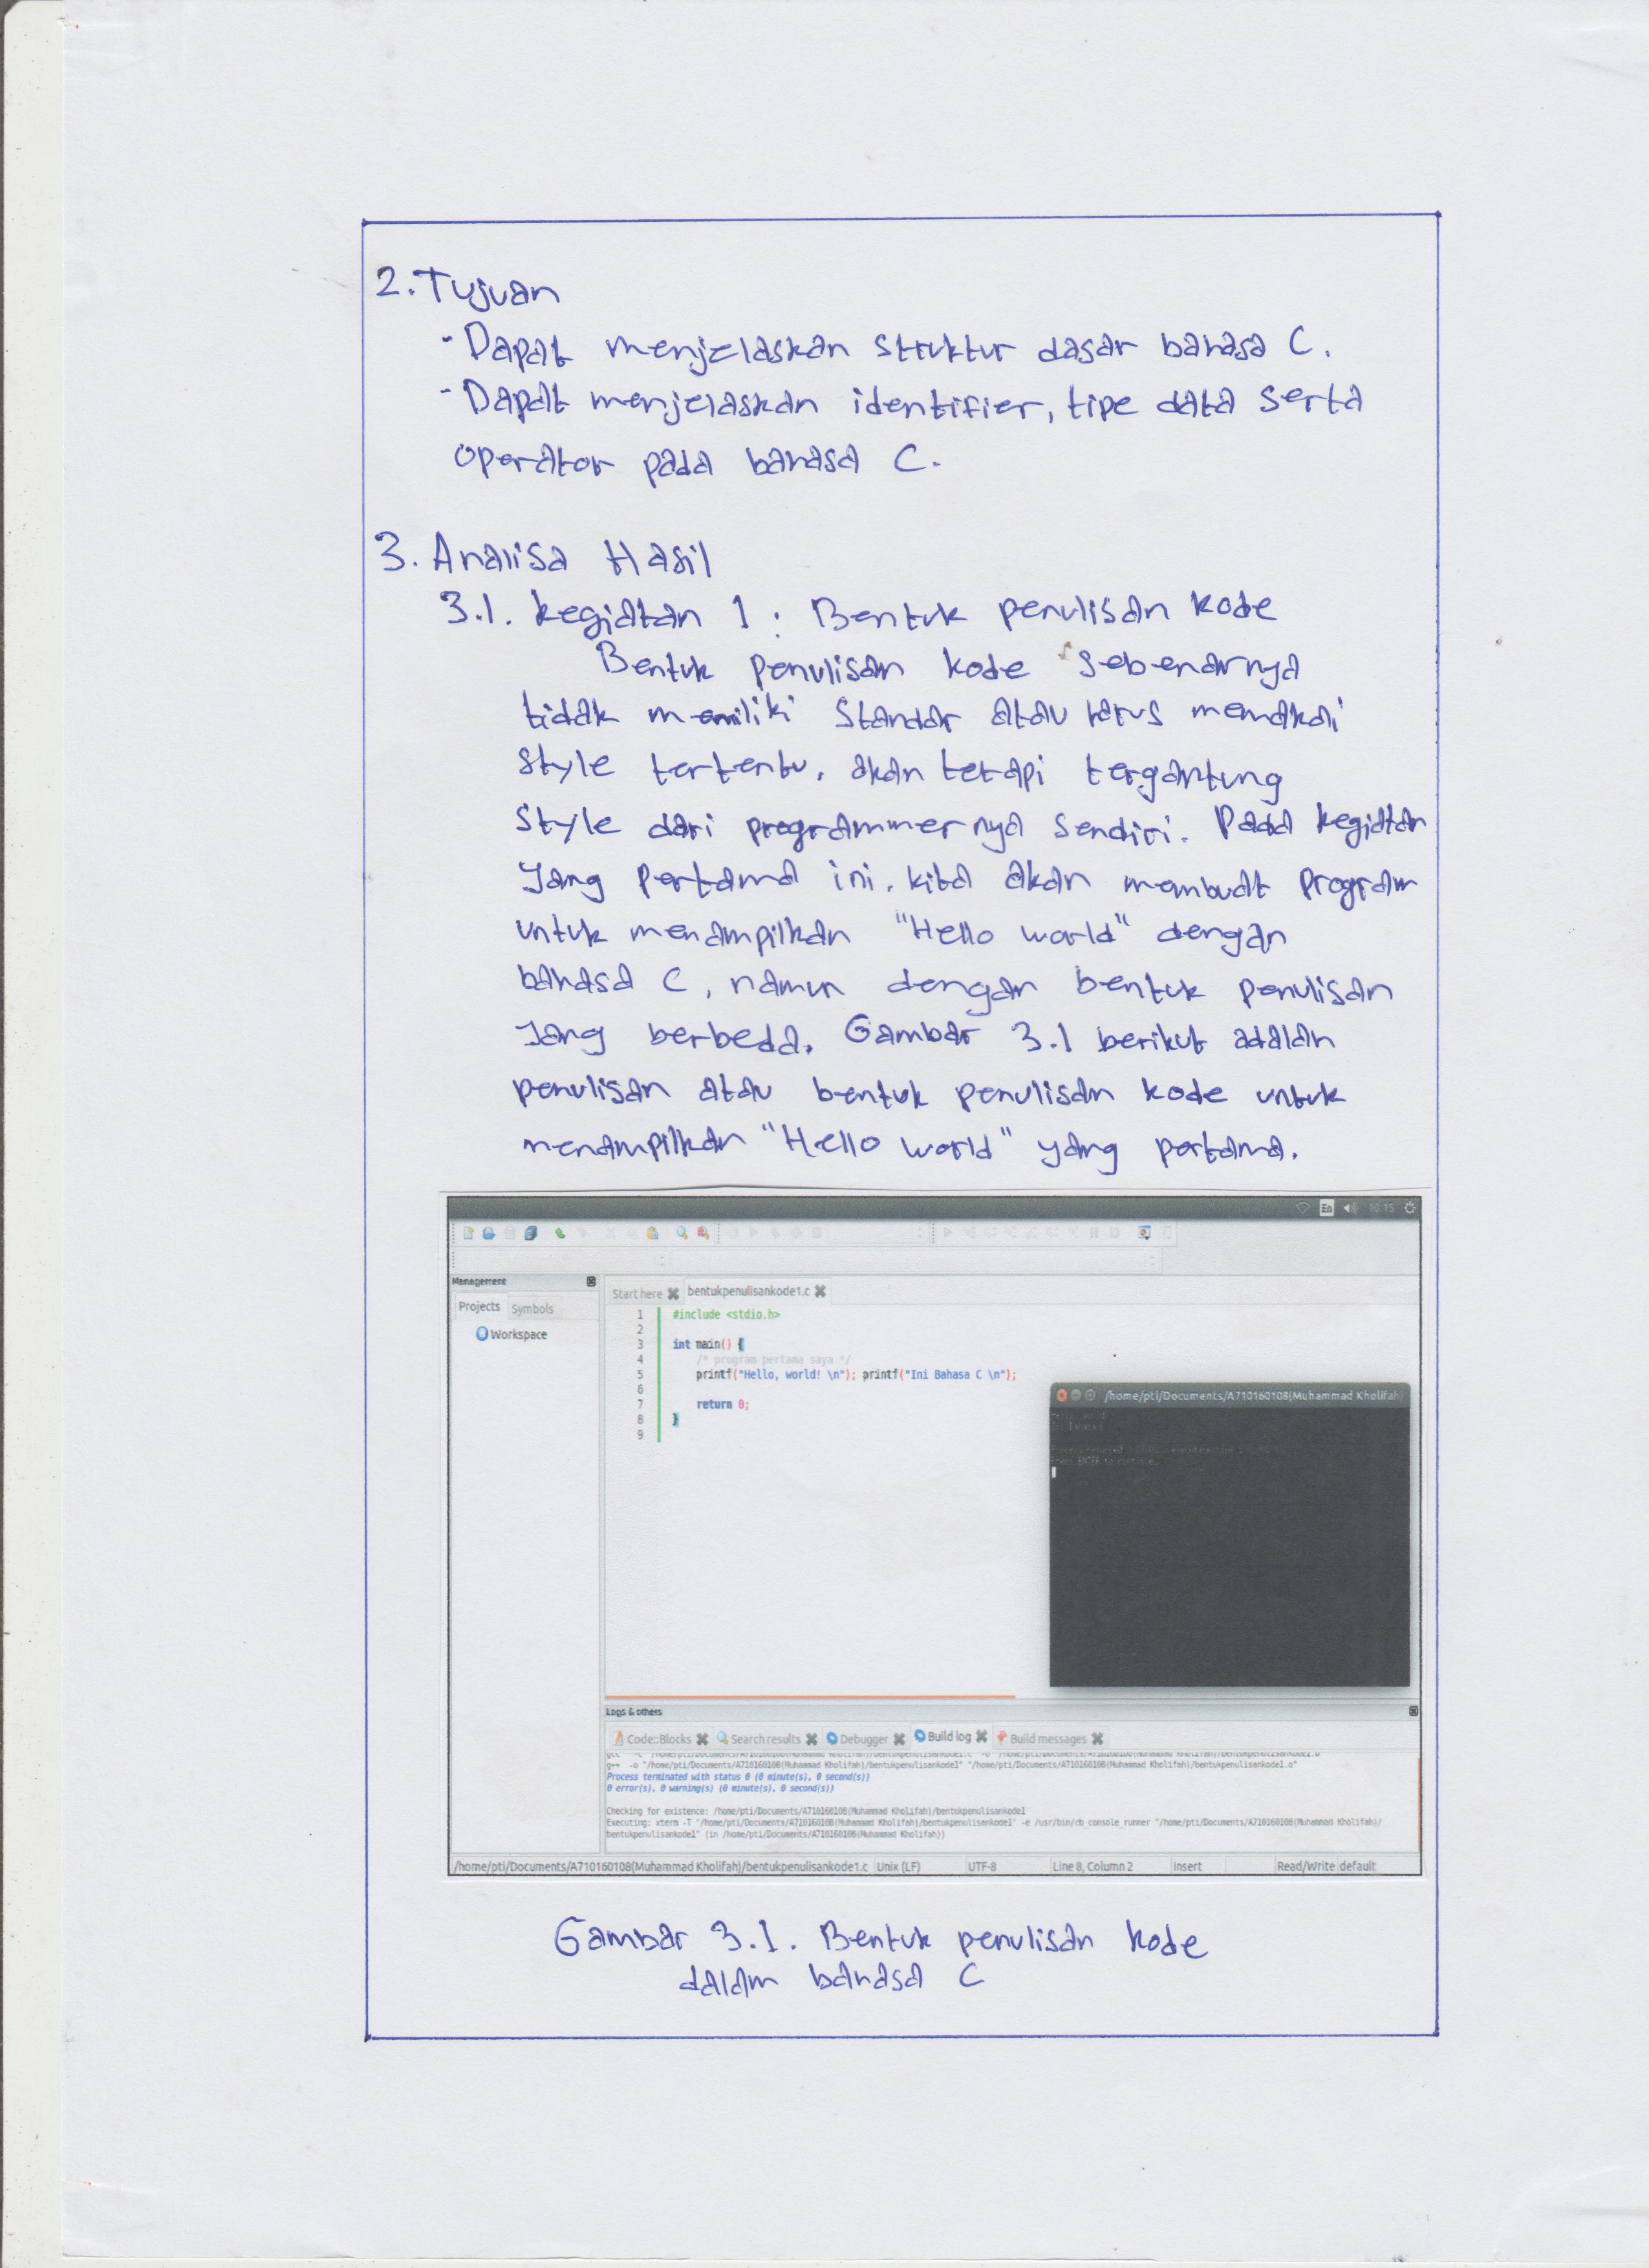 2. Tujuan
- Dapat menjelaskan struktur dasar bahasa C.
- Dapat menjelaskan identifier, tipe data serta
operator pada bahasa C.
3. Analisa Hasil
3.1. kegiatan 1 : Bentuk penulisan kode
Bentuk penulisan kode sebenarnya
tidak memiliki standar atau harus memakai
style tertentu, akan tetapi tergantung
style dari programmernya sendiri. Pada kegiatan
yang pertama ini, kita akan membuat program
untuk menampilkan "Hello world" dengan
bahasa C, namun dengan bentuk penulisan
yang berbeda. Gambar 3.1 berikut adalah
penulisan atau bentuk penulisan kode untuk
menampilkan "Hello world" yang pertama.
En 10.15
Management
Start here bentukpenulisankode1.c
Projects Symbols
Workspace
1 #include <stdio.h>
2
3 int main() {
4 /* program pertama saya */
5 printf("Hello, world! \n"); printf("Ini Bahasa C \n");
6
7 return 0;
8 }
9
/home/pti/Documents/A710160108(Muhammad Kholifah)
Logs & others
Code::Blocks Search results Debugger Build log Build messages
g++ -o "/home/pti/Documents/A710160108(Muhammad Kholifah)/bentukpenulisankode1" "/home/pti/Documents/A710160108(Muhammad Kholifah)/bentukpenulisankode1.o"
Process terminated with status 0 (0 minute(s), 0 second(s))
0 error(s), 0 warning(s) (0 minute(s), 0 second(s))
Checking for existence: /home/pti/Documents/A710160108(Muhammad Kholifah)/bentukpenulisankode1
Executing: xterm -T '/home/pti/Documents/A710160108(Muhammad Kholifah)/bentukpenulisankode1' -e /usr/bin/cb_console_runner "/home/pti/Documents/A710160108(Muhammad Kholifah)/
bentukpenulisankode1" (in /home/pti/Documents/A710160108(Muhammad Kholifah))
/home/pti/Documents/A710160108(Muhammad Kholifah)/bentukpenulisankode1.c Unix (LF) UTF-8 Line 8, Column 2 Insert Read/Write default
Gambar 3.1. Bentuk penulisan kode
dalam bahasa C